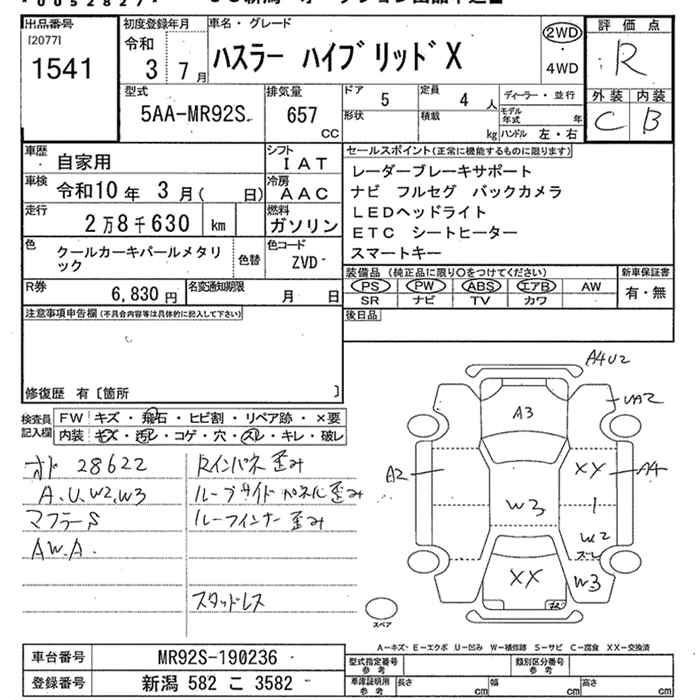 出品番号
[2077]
1541
初度登録年月
令和
3 7 月
車名・グレード
ハスラー ハイブリッドX
2WD
4WD
評価点
R
外装 内装
C B
型式
5AA-MR92S
排気量
657 cc
ドア 5
定員 4 人
形状
積載 kg
ディーラー・並行
モデル年式 年
ハンドル 左・右
車歴 自家用
シフト IAT
車検 令和10年 3月( 日)
冷房 AAC
走行 2万8千630 km
燃料 ガソリン
色 クールカーキパールメタリック
色替
色コード ZVD
R券 6,830 円
名変通知期限 月 日
セールスポイント(正常に機能するものに限ります)
レーダーブレーキサポート
ナビ フルセグ バックカメラ
LEDヘッドライト
ETC シートヒーター
スマートキー
装備品(純正品に限り○をつけてください)
PS PW ABS エアB AW
SR ナビ TV カワ
新車保証書
有・無
後日品
注意事項申告欄(不具合内容等は具体的に記入して下さい)
修復歴 有〔箇所 〕
検査員記入欄
FW キズ・飛石・ヒビ割・リペア跡・×要
内装 キズ・汚レ・コゲ・穴・スレ・キレ・破レ
28622
A.U.W2,W3
マフラーS
AW.A.
Rインパネ歪み
ルーフサイドパネル歪み
ルーフインナー歪み
スタッドレス
A4U2
UA2
A3
A2
XX
A4
W3
W2
スレ
XX
W3
スペア
A-キズ、E-エクボ U-凹み W-補修跡 S-サビ C-腐食 XX-交換済
車台番号 MR92S-190236
登録番号 新潟 582 こ 3582
型式指定番号 参考
類別区分番号 参考
車庫証明用 参考
長さ cm
幅 cm
高さ cm